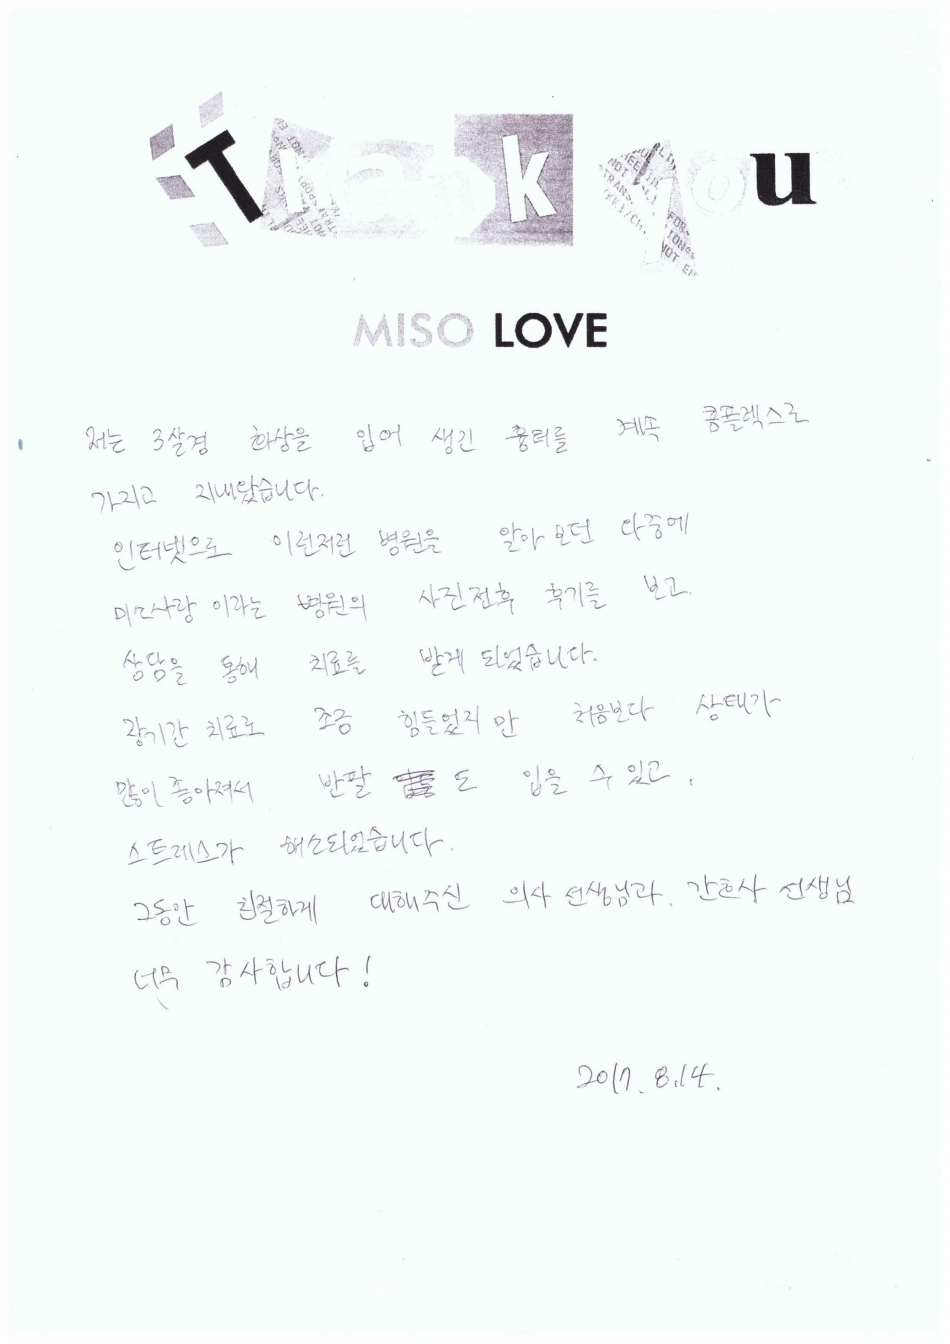 Thank you
MISO LOVE
저는 3살경 화상을 입어 생긴 흉터를 계속 콤플렉스로
가지고 지내왔습니다.
인터넷으로 이런저런 병원을 알아보던 와중에
미소사랑 이라는 병원의 사진전후 후기를 보고.
상담을 통해 치료를 받게 되었습니다.
장기간 치료로 조금 힘들었지만 처음보다 상태가
많이 좋아져서 반팔 도 입을 수 있고,
스트레스가 해소되었습니다.
그동안 친절하게 대해주신 의사 선생님과. 간호사 선생님
너무 감사합니다!
2017. 8.14.